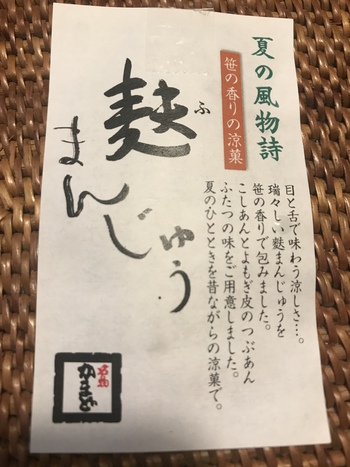 夏の風物詩
笹の香りの涼菓
麩
ふ
まんじゅう
目と舌で味わう涼しさ…。
瑞々しい麩まんじゅうを
笹の香りで包みました。
こしあんとよもぎ皮のつぶあん
ふたつの味をご用意しました。
夏のひとときを昔ながらの涼菓で。
名物
かまど